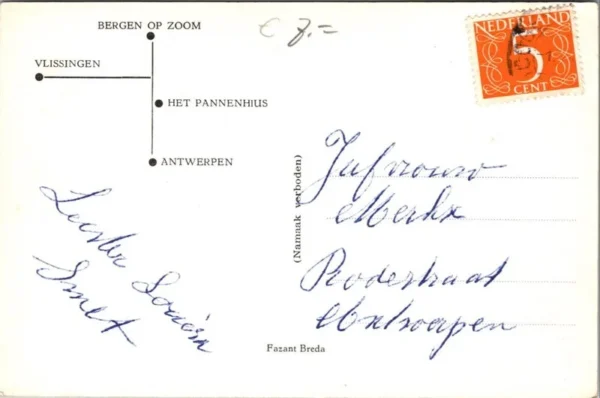 BERGEN OP ZOOM
€ 7.=
NEDERLAND
5
CENT
VLISSINGEN
HET PANNENHIUS
ANTWERPEN
(Namaak verboden)
Jufvrouw
Merkx
Rodestraat
Antwerpen
Smet
Fazant Breda